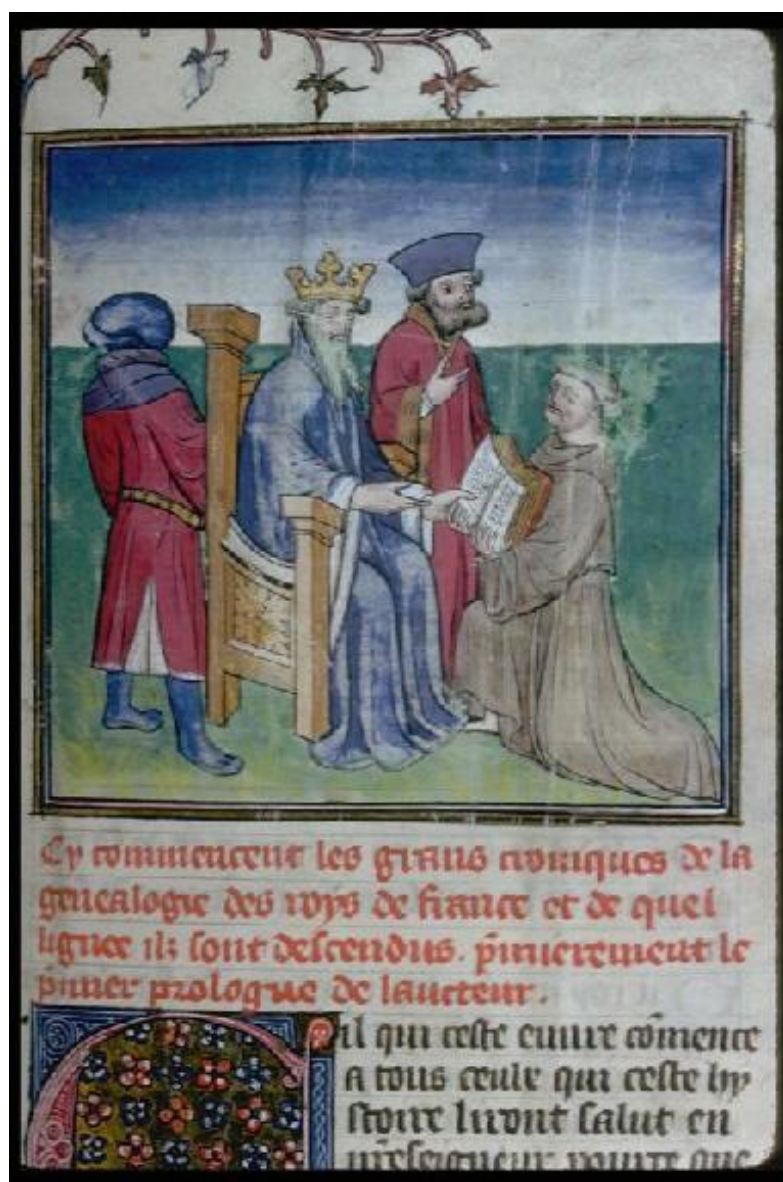 Cy commencent les grans croniques de la
genealogie des roys de france et de quel
lignee ilz sont descendus. p̃mierement le
p̃mier prologue de laucteur.
Cil qui ceste euure cõmence
a tous ceulx qui ceste hy
stoire liront salut en